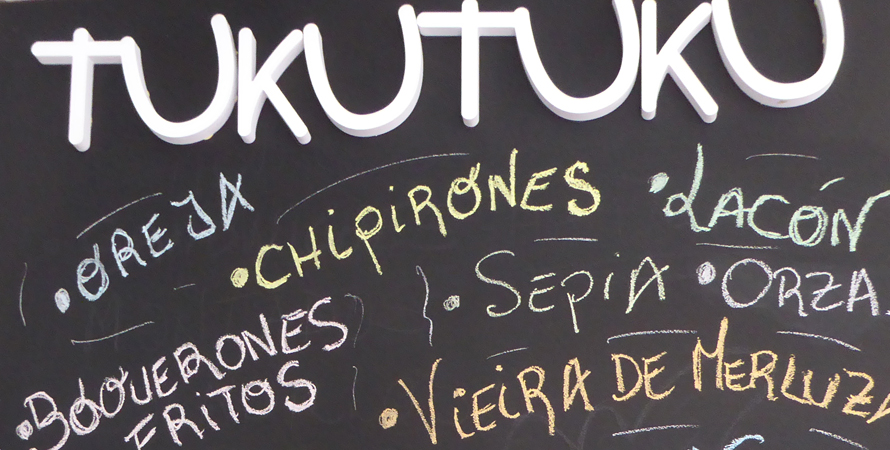 TUKUTUKU
• OREJA
• CHIPIRONES
• LACÓN
• SEPIA
• ORZA
• BOQUERONES
FRITOS
• VIEIRA DE MERLUZA